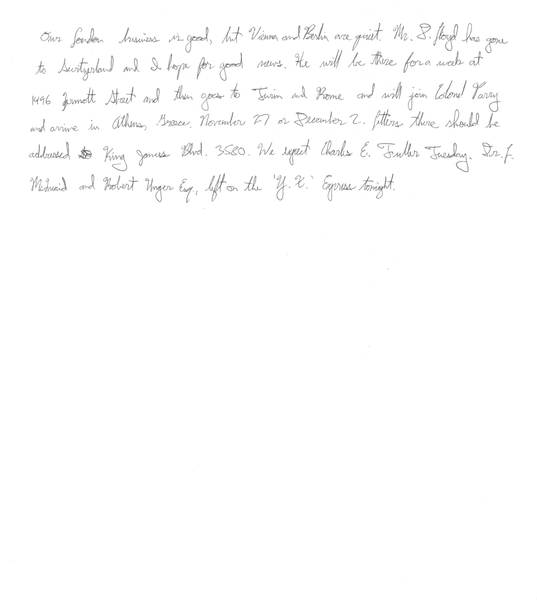 Our London business is good, but Vienna and Berlin are quiet. Mr. D. Lloyd has gone
to Switzerland and I hope for good news. He will be there for a week at
1496 Zermott Street and then goes to Turin and Rome and will join Colonel Parry
and arrive in Athens, Greece, November 27 or December 2. Letters there should be
addressed King James Blvd. 3580. We expect Charles E. Fuller Tuesday. Dr. L.
McQuaid and Robert Unger Esq., left on the 'Y. X.' Express tonight.